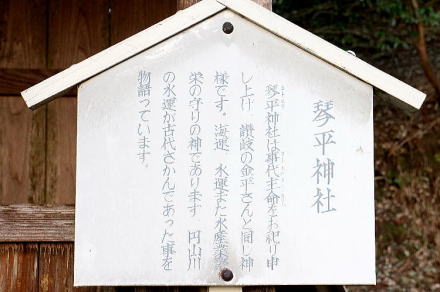 琴平神社
琴平神社は事代主命をお祀り申
し上げ 讃岐の金平さんと同じ神
様です。海運 水運また水産業繁
栄の守りの神であります 円山川
の水運が古代さかんであった事を
物語っています。